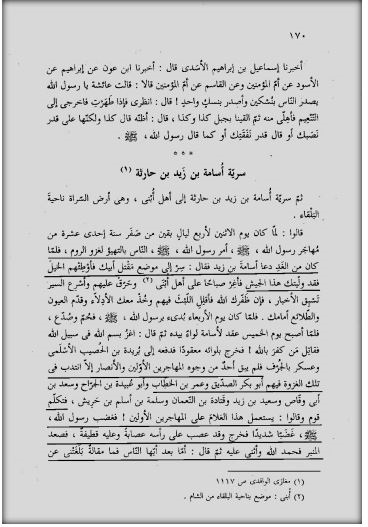 ١٧٠
أخبرنا إسماعيل بن إبراهيم الأسَدى قال : أخبرنا ابن عون عن إبراهيم عن
الأسود عن أمّ المؤمنين وعن القاسم عن أمّ المؤمنين قالا : قالت عائشة يا رسول الله
يصدر النّاس بنُسُكين وأصدر بنسكٍ واحدٍ ! قال : انظرى فإذا طَهُرْتِ فاخرجى إلى
التّنْعيم فأهِلّى منه ثمّ القينا بجبل كذا وكذا ، قال : أظنّه قال كذا ولكنّها على قدر
نَصَبِك أو قال قدر نَفَقَتِك أو كما قال رسول الله ، ﷺ .
* * *
سريّة أُسامة بن زَيد بن حارثة (١)
ثمّ سريّة أُسامة بن زيد بن حارثة إلى أهل أُبْنى ، وهى أرض السّراة ناحيةَ
البَلْقاء .
قالوا : لمّا كان يوم الاثنين لأربع ليالٍ بقين من صَفَر سنة إحدى عشرة من
مُهاجَر رسول الله ، ﷺ ، أمر رسول الله ، ﷺ ، النّاس بالتهيّؤ لغزو الروم ، فلمّا
كان من الغَدِ دعا أسامة بن زيد فقال : سِرْ إلى موضع مَقْتل أبيك فأَوْطِئْهم الخيل
فقد ولّيتك هذا الجيش فأَغِرْ صباحًا على أهل أُبْنَى (٢) وحَرّقْ عليهم وأسْرع السير
تَسْبِق الأخبار ، فإن ظَفّرك الله فأقلِل اللّبْثَ فيهم وخُذْ معك الأدِلاّء وقدّم العيون
والطّلائع أمامك . فلمّا كان يوم الأربعاء بُدىء برسول الله ، ﷺ ، فحُمّ وصُدّع ،
فلمّا أصبح يوم الخميس عقد لأسامة لواءً بيده ثمّ قال : اغزُ بسم الله فى سبيل الله
فقاتِل مَن كفر بالله ! فخرج بلوائه معقودًا فدفعه إلى بُريدة بن الحُصيب الأَسْلَمى
وعسكر بالجُرْف فلم يبق أحدٌ من وجوه المهاجرين الأوّلين والأنصار إلاّ انتدب فى
تلك الغزوة فيهم أبو بكر الصدّيق وعمر بن الخطّاب وأبو عُبيدة بن الجرّاح وسعد بن
أبى وقّاص وسعيد بن زيد وقَتادة بن النّعمان وسلمة بن أسلم بن حريش ، فتكلّم
قوم وقالوا : يستعمل هذا الغلامَ على المهاجرين الأولين ! فغضب رسول الله ،
ﷺ ، غضبًا شديدًا فخرج وقد عصب على رأسه عصابةً وعليه قطيفةٌ ، فصعد
المنبر فحمد الله وأثنى عليه ثمّ قال : أمّا بعد أيّها النّاس فما مقالةٌ بَلَغَتْنى عن
(١) مغازى الواقدى ص ١١١٧
(٢) أُبنى : موضع بناحية البلقاء من الشام .